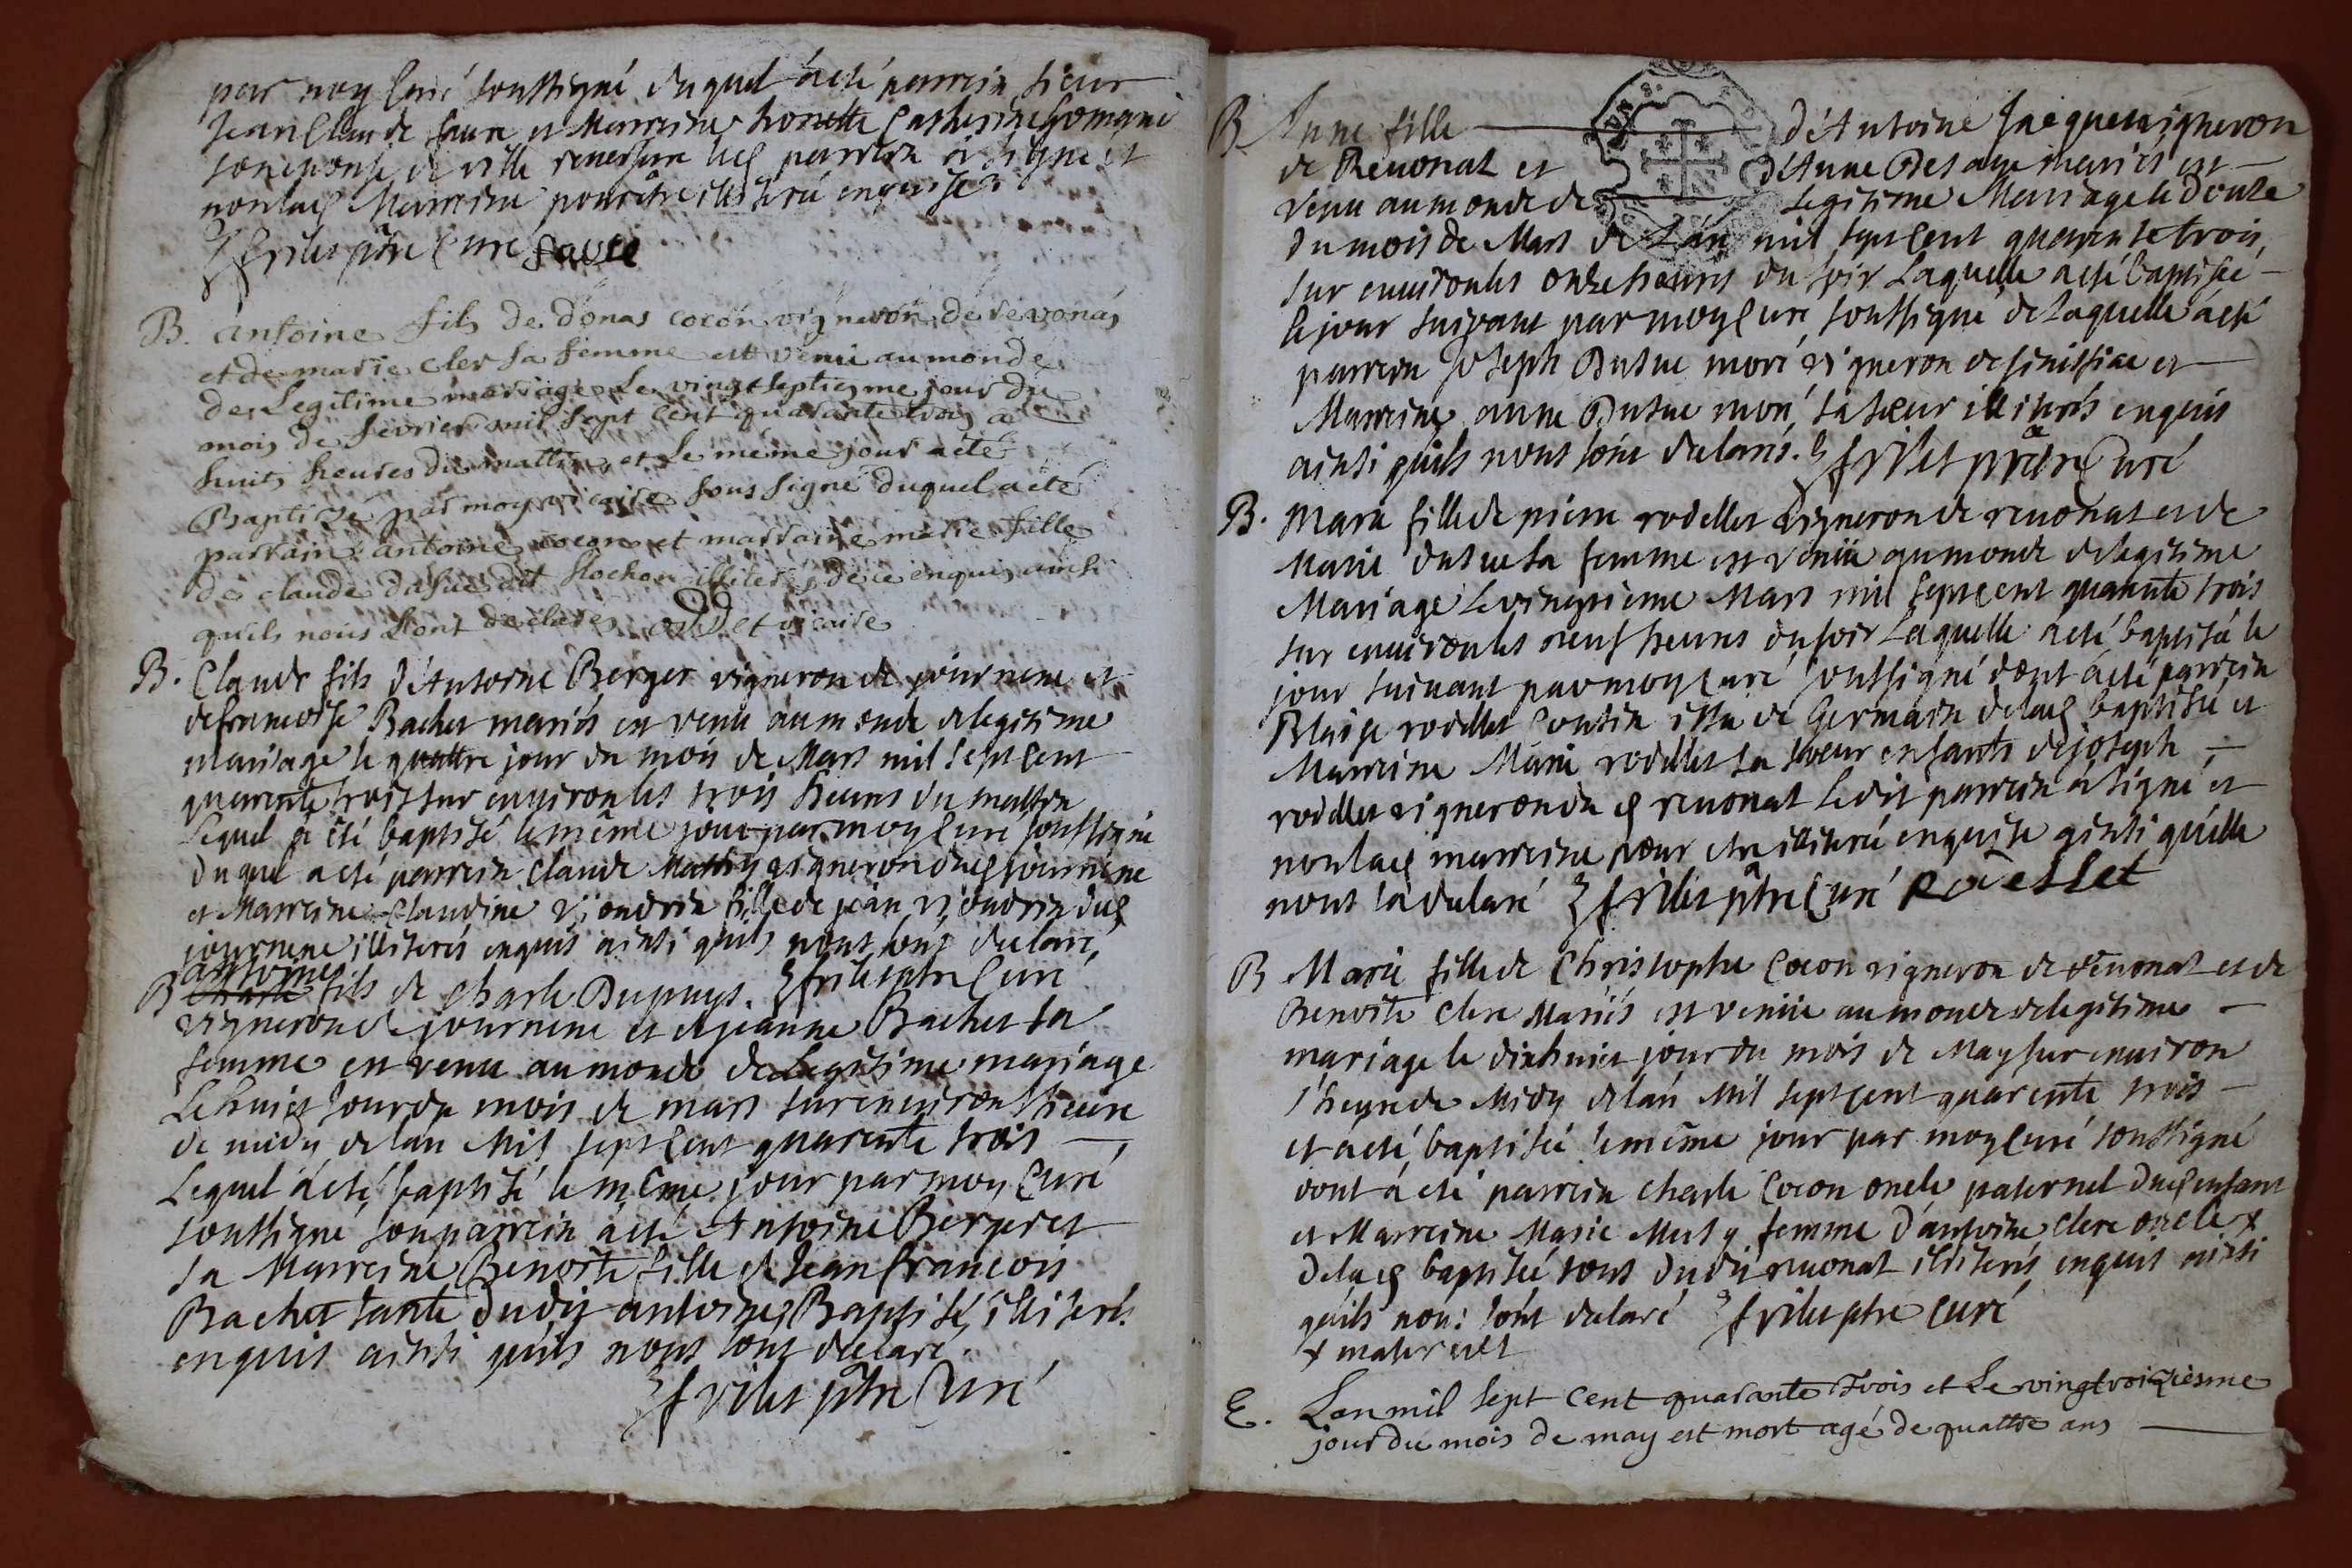 par moy Curé soussigné duquel à eté parrein sieur
Jean Claude faure et Marreine honette Catherine
son epouse de ville reversure led parrein à signé et
non lad Marreine pour être illiteré enquise
frilet ptre Curé faure
B. antoine fils de donas cocon vigneron de revonas
et de marie cler sa femme est venu au monde
de Legitime mariage Le vingt septiesme jour du
mois de fevrier mil sept cent quarante trois a
huit heures du mattin et Le même jour a eté
Baptizé par moy vicaire sous signé duquel a eté
parrain antoine cocon et marraine marie fille
de claude dasue dit illiterés de ce enquis ainsi
quils nous L'ont declarés oddet vicaire
B. Claude fils d'Antoine Berger vigneron de journene et
de francoise Bachet mariés est venu au monde de legitime
mariage le quattre jour du mois de Mars mil sept cent
quarente trois sur environ les trois heures du mattin
Lequel à été baptisé le même jour par moy Curé soussigné
duquel a eté parrein Claude Mathy vigneron dud journene
et Marreine Claudine vioudrin fille de jean vioudrin dud
journene illiterés enquis ainsi quils nous l'ont declaré,
antoine
B Charle fils de Charle Dupuys. frilet ptre Curé
vigneron de journene et de jeanne Bachet sa
femme est venu au monde de Legitime mariage
Le huict jour du mois de mars sur environ l'heure
de midy de l'an Mil sept cent quarente trois —,
Lequel à eté baptisé le même jour par moy Curé
soussigné son parrein à eté Antoine Berger et
sa Marreine Benoite fille de Jean françois
Bachet tante dudit antoine Baptisé, illiterés
enquis ainsi quils nous l'ont declaré.
frilet ptre Curé
B Anne fille — d'Antoine Jacquet vigneron
de Revonat et d'Anne mariés est
venu au monde de — Legitime Mariage le douze
du mois de Mars de L'an mil sept cent quarente trois,
sur environ les onze heures du soir Laquelle a eté baptisée —
le jour suivant par moy Curé soussigné de laquelle à eté
parrein Joseph Dusue moré vigneron de et
Marreine anne Dusue moré, sa soeur illiterés enquis
ainsi quils nous l'ont declaré. frilet prêtre Curé
B. Marie fille de pierre rodellet vigneron de revonat et de
Marie dusue sa femme est venüe au monde de legitime
Mariage le vingtieme Mars mil sept cent quarante trois
sur environ les neuf heures du soir Laquelle a eté baptisée le
jour suivant par moy Curé soussigné dont à eté parrein
Blaise rodellet Cousin issu de Germain de lad baptisée et
Marreine Marie rodellet sa soeur enfants de joseph —
rodellet vigneron dud revonat Ledit parrein a signé et
non lad marreine pour etre illiteré enquise ainsi quelle
nous l'a declaré frilet ptre Curé Roeslet
B Marie fille de Christophe Cocon vigneron de revonat et de
Benoite Clere Mariés est venüe au monde de legitime —
mariage le dixhuict jour du mois de May sur environ
l'heure de Midy de l'an Mil sept cent quarente trois —
et a eté baptisée le même jour par moy Curé soussigné
dont à eté parrein Charle Cocon oncle paternel dud enfant
et Marreine Marie Musy femme d'antoine Clere oncle x
de lad baptisée tous dudit revonat illiterés enquis ainsi
quils nous l'ont declaré frilet ptre Curé
x maternel
E. L'an mil sept cent quarante trois et Le vingt troiziesme
jour du mois de may est mort agé de quattre ans —